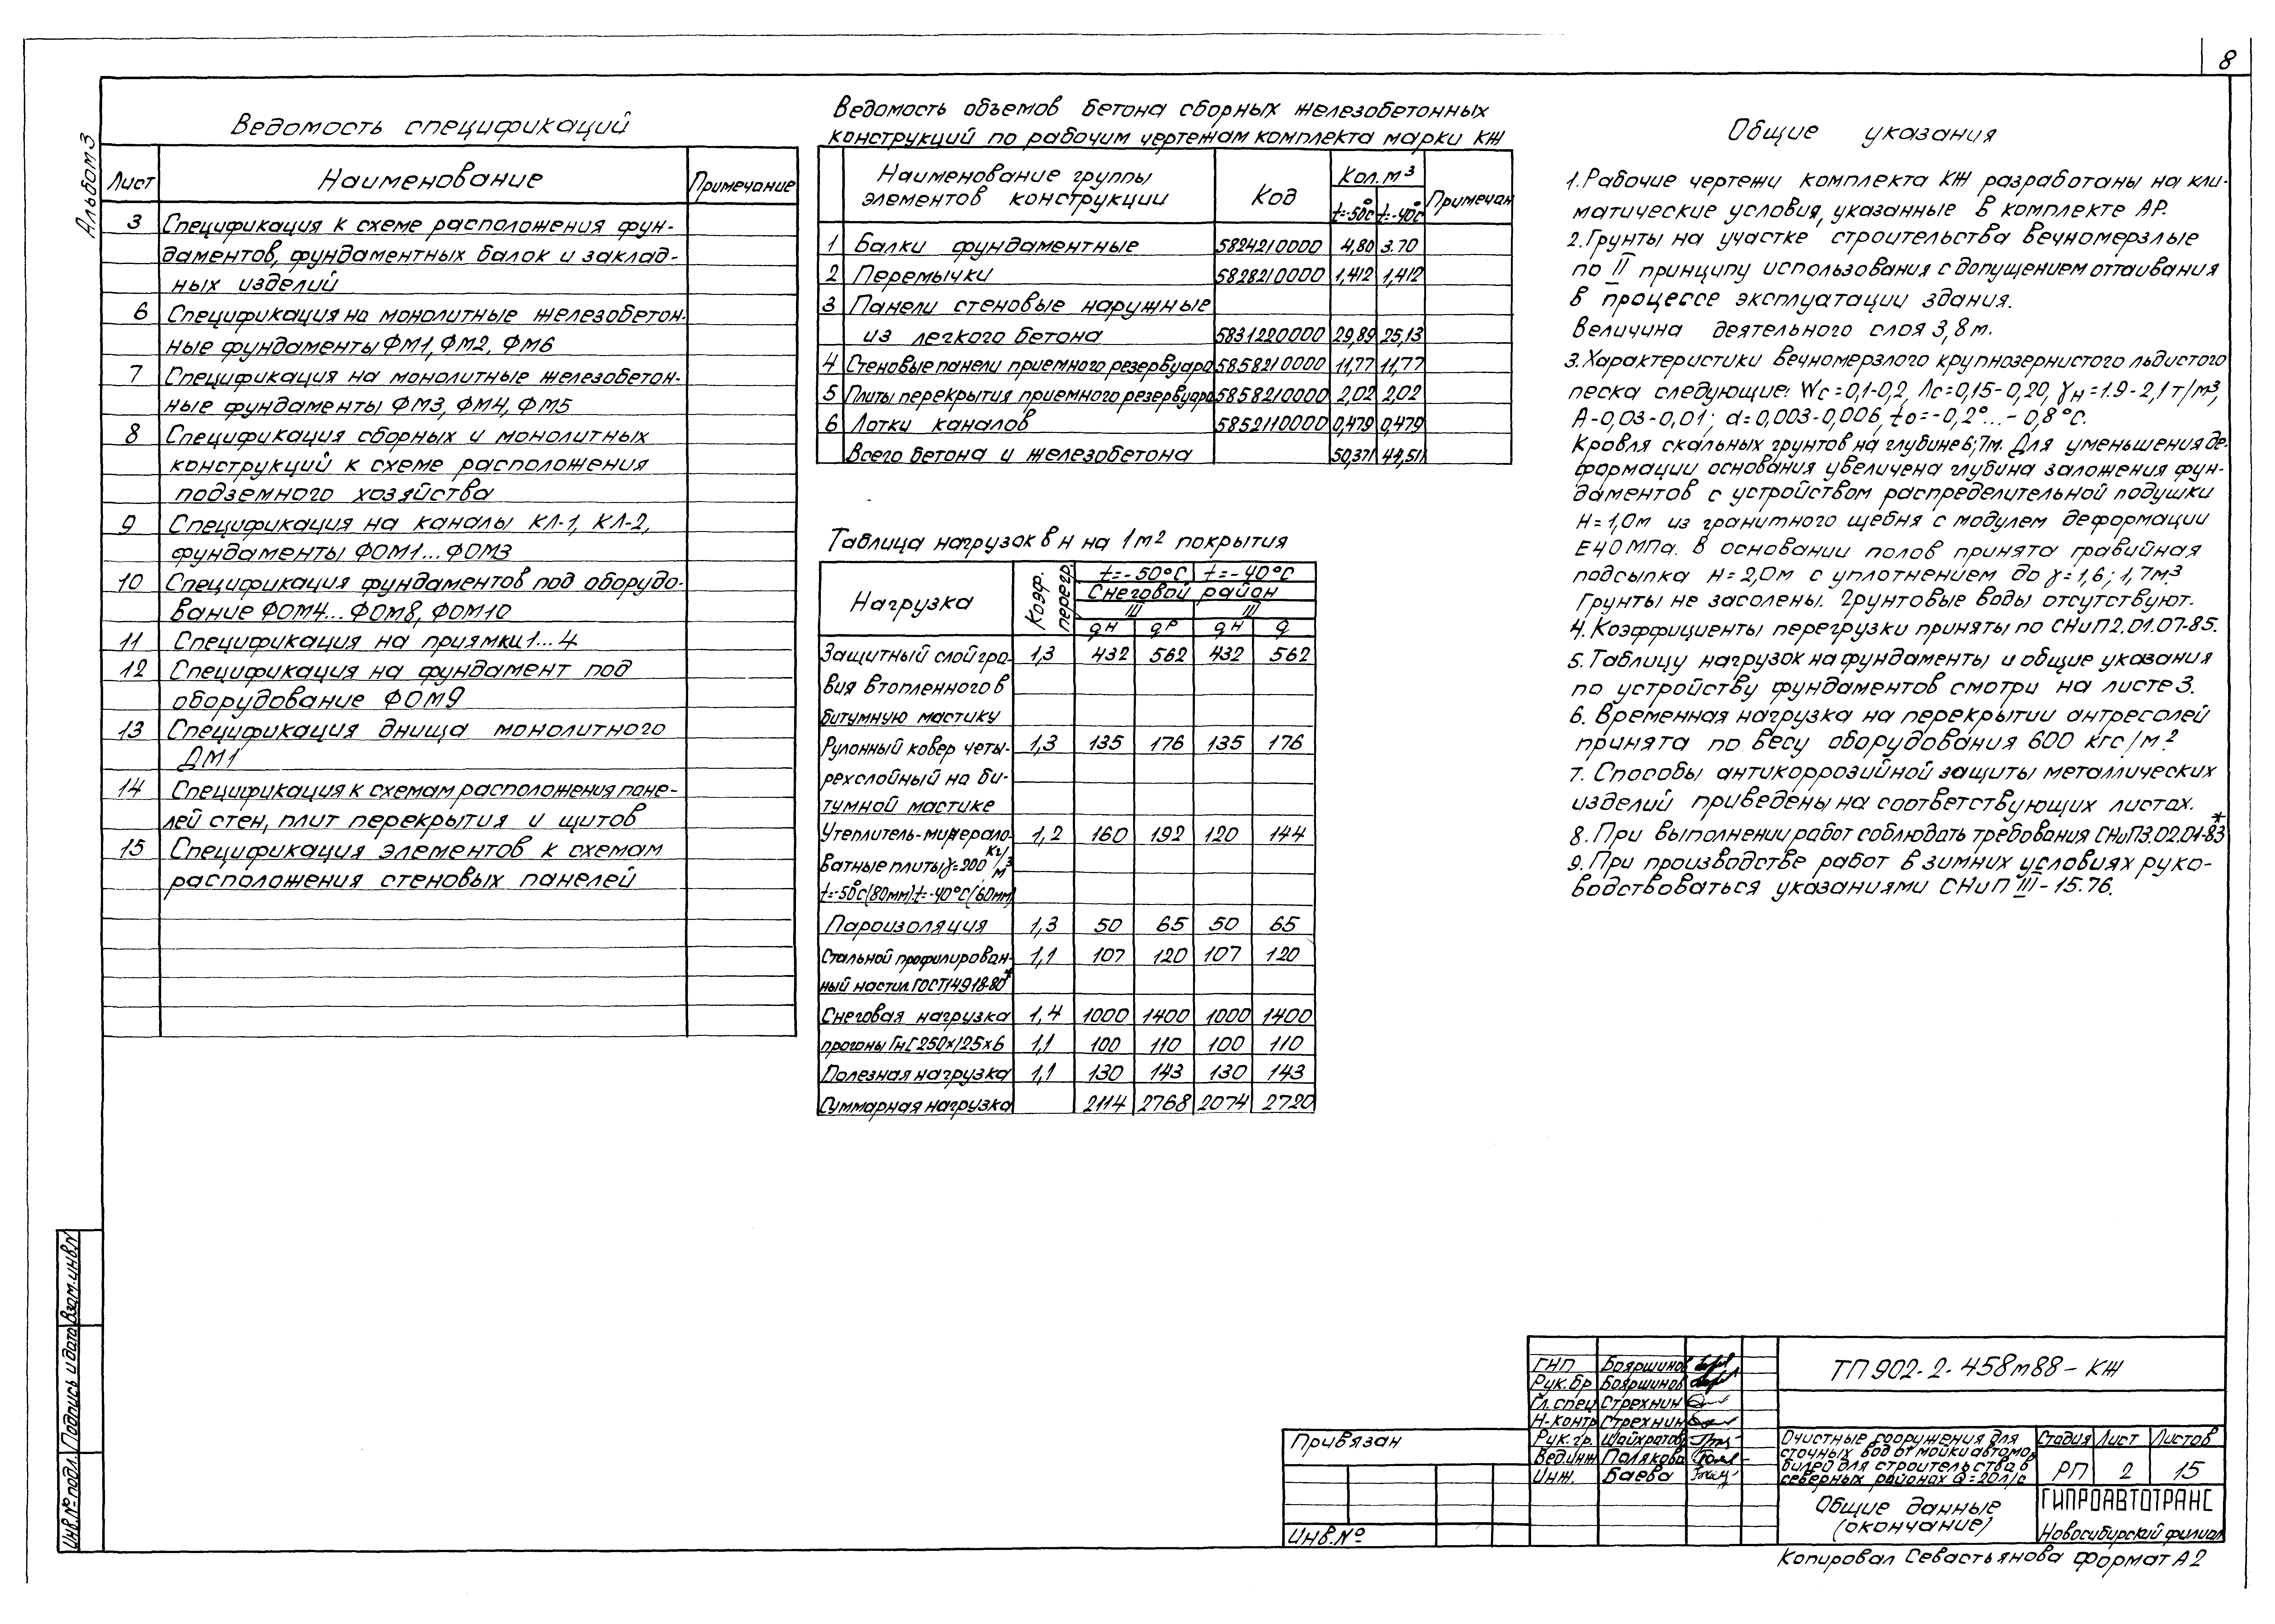 8
Альбом 3
Ведомость спецификаций
Лист Наименование Примечание
3 Спецификация к схеме расположения фун-
даментов, фундаментных балок и заклад-
ных изделий
6 Спецификация на монолитные железобетон-
ные фундаменты ФМ1, ФМ2, ФМ6
7 Спецификация на монолитные железобетон-
ные фундаменты ФМ3, ФМ4, ФМ5
8 Спецификация сборных и монолитных
конструкций к схеме расположения
подземного хозяйства
9 Спецификация на каналы КЛ-1, КЛ-2,
фундаменты ФОМ1...ФОМ3
10 Спецификация фундаментов под оборудо-
вание ФОМ4...ФОМ8, ФОМ10
11 Спецификация на приямки 1...4
12 Спецификация на фундамент под
оборудование ФОМ9
13 Спецификация днища монолитного
ДМ1
14 Спецификация к схемам расположения пане-
лей стен, плит перекрытия и щитов
15 Спецификация элементов к схемам
расположения стеновых панелей
Ведомость объемов бетона сборных железобетонных
конструкций по рабочим чертежам комплекта марки КЖ
Наименование группы элементов конструкции Код Кол. м³ Примечан
t=-50°с t=-40°с
1 Балки фундаментные 5824210000 4,80 3.70
2 Перемычки 5828210000 1,412 1,412
3 Панели стеновые наружные
из легкого бетона 5831220000 29,89 25,13
4 Стеновые панели приемного резервуара 5858210000 11,77 11,77
5 Плиты перекрытия приемного резервуара 5858210000 2,02 2,02
6 Лотки каналов 5852110000 0,479 0,479
Всего бетона и железобетона 50,371 44,511
Таблица нагрузок в н на 1м² покрытия
Нагрузка Коэф. перегр. t=-50°С t=-40°С
Снеговой район
III III
qН qР qН q
Защитный слой гра- 1,3 432 562 432 562
вия втопленного в
битумную мастику
Рулонный ковер четы- 1,3 135 176 135 176
рехслойный на би-
тумной мастике
Утеплитель-минерало- 1,2 160 192 120 144
ватные плиты γ=200 кг/м³
t=-50°С(80мм), t=-40°С(60мм)
Пароизоляция 1,3 50 65 50 65
Стальной профилирован- 1,1 107 120 107 120
ный настил ГОСТ14918-80*
Снеговая нагрузка 1,4 1000 1400 1000 1400
прогоны ГнС 250х125х6 1,1 100 110 100 110
Полезная нагрузка 1,1 130 143 130 143
Суммарная нагрузка 2114 2768 2074 2720
Общие указания
1. Рабочие чертежи комплекта КЖ разработаны на кли-
матические условия, указанные в комплекте АР.
2. Грунты на участке строительства вечномерзлые
по II принципу использования с допущением оттаивания
в процессе эксплуатации здания.
Величина деятельного слоя 3,8 м.
3. Характеристики вечномерзлого крупнозернистого льдистого
песка следующие: Wс=0,1-0,2, Лс=0,15-0,20, γн=1.9-2,1т/м³,
А-0,03-0,01; α=0,003-0,006, tо=-0,2°...-0,8°С.
Кровля скальных грунтов на глубине 6;7м. Для уменьшения де-
формации основания увеличена глубина заложения фун-
даментов с устройством распределительной подушки
Н=1,0м из гранитного щебня с модулем деформации
Е40МПа. В основании полов принята гравийная
подсыпка Н=2,0м с уплотнением до γ=1,6; 1,7м³.
Грунты не засолены. Грунтовые воды отсутствуют.
4. Коэффициенты перегрузки приняты по СНиП2.01.07-85.
5. Таблицу нагрузок на фундаменты и общие указания
по устройству фундаментов смотри на листе 3.
6. Временная нагрузка на перекрытии антресолей
принята по весу оборудования 600 кгс/м².
7. Способы антикоррозийной защиты металлических
изделий приведены на соответствующих листах.
8. При выполнении работ соблюдать требования СНиП3.02.01-83*
9. При производстве работ в зимних условиях руко-
водствоваться указаниями СНиП III-15.76.
Инв.№подл. Подпись и дата Взам.инв.№
Привязан
Инв.№
ГНП Бояршинов
Рук.бр Бояршинов
Гл.спец Стрехнин
Н-контр Стрехнин
Рук.гр. Шайхратов
Вед.инж Полякова
Инж. Баева
ТП 902-2-458м88-КЖ
Очистные сооружения для
сточных вод от мойки автомо-
билей для строительства в
северных районах Q=20л/с
Стадия Лист Листов
РП 2 15
Общие данные
(окончание)
ГИПРОАВТОТРАНС
Новосибирский филиал
Копировал Севастьянова Формат А2